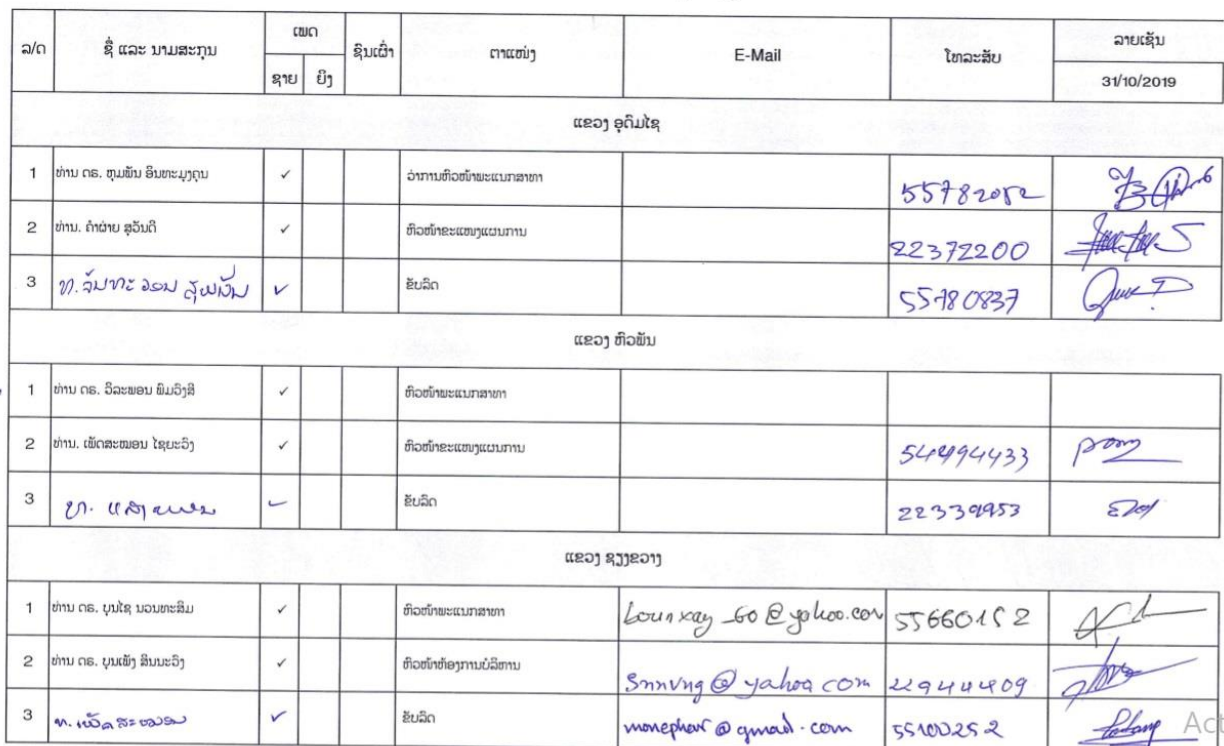 ລ/ດ ຊື່ ແລະ ນາມສະກຸນ ເພດ ຊົນເຜົ່າ ຕາແໜ່ງ E-Mail ໂທລະສັບ ລາຍເຊັນ
ຊາຍ ຍິງ 31/10/2019
ແຂວງ ອຸດົມໄຊ
1 ທ່ານ ດຣ. ຫຸມພັນ ອິນທະມຸງຄຸນ ✓ ວ່າການຫົວໜ້າພະແນກສາທາ 55782052
2 ທ່ານ. ຄຳຜ່າຍ ສຸວັນດີ ✓ ຫົວໜ້າຂະແໜງແຜນການ 22372200
3 ທ. ຈັນທະ ✓ ຂັບລົດ 55780837
ແຂວງ ຫົວພັນ
1 ທ່ານ ດຣ. ວິລະພອນ ພິມວິງສີ ✓ ຫົວໜ້າພະແນກສາທາ
2 ທ່ານ. ເພັດສະໝອນ ໄຊຍະວົງ ✓ ຫົວໜ້າຂະແໜງແຜນການ 54494433
3 ທ. ✓ ຂັບລົດ
ແຂວງ ຊຽງຂວາງ
1 ທ່ານ ດຣ. ບຸນໄຊ ນວນທະສິມ ✓ ຫົວໜ້າພະແນກສາທາ bounxay_60@yahoo.com 55660152
2 ທ່ານ ດຣ. ບຸນເພັງ ສິນນະວົງ ✓ ຫົວໜ້າຫ້ອງການບໍລິຫານ Snnvng@yahoo com 22944409
3 ທ. ✓ ຂັບລົດ 55100252
Act